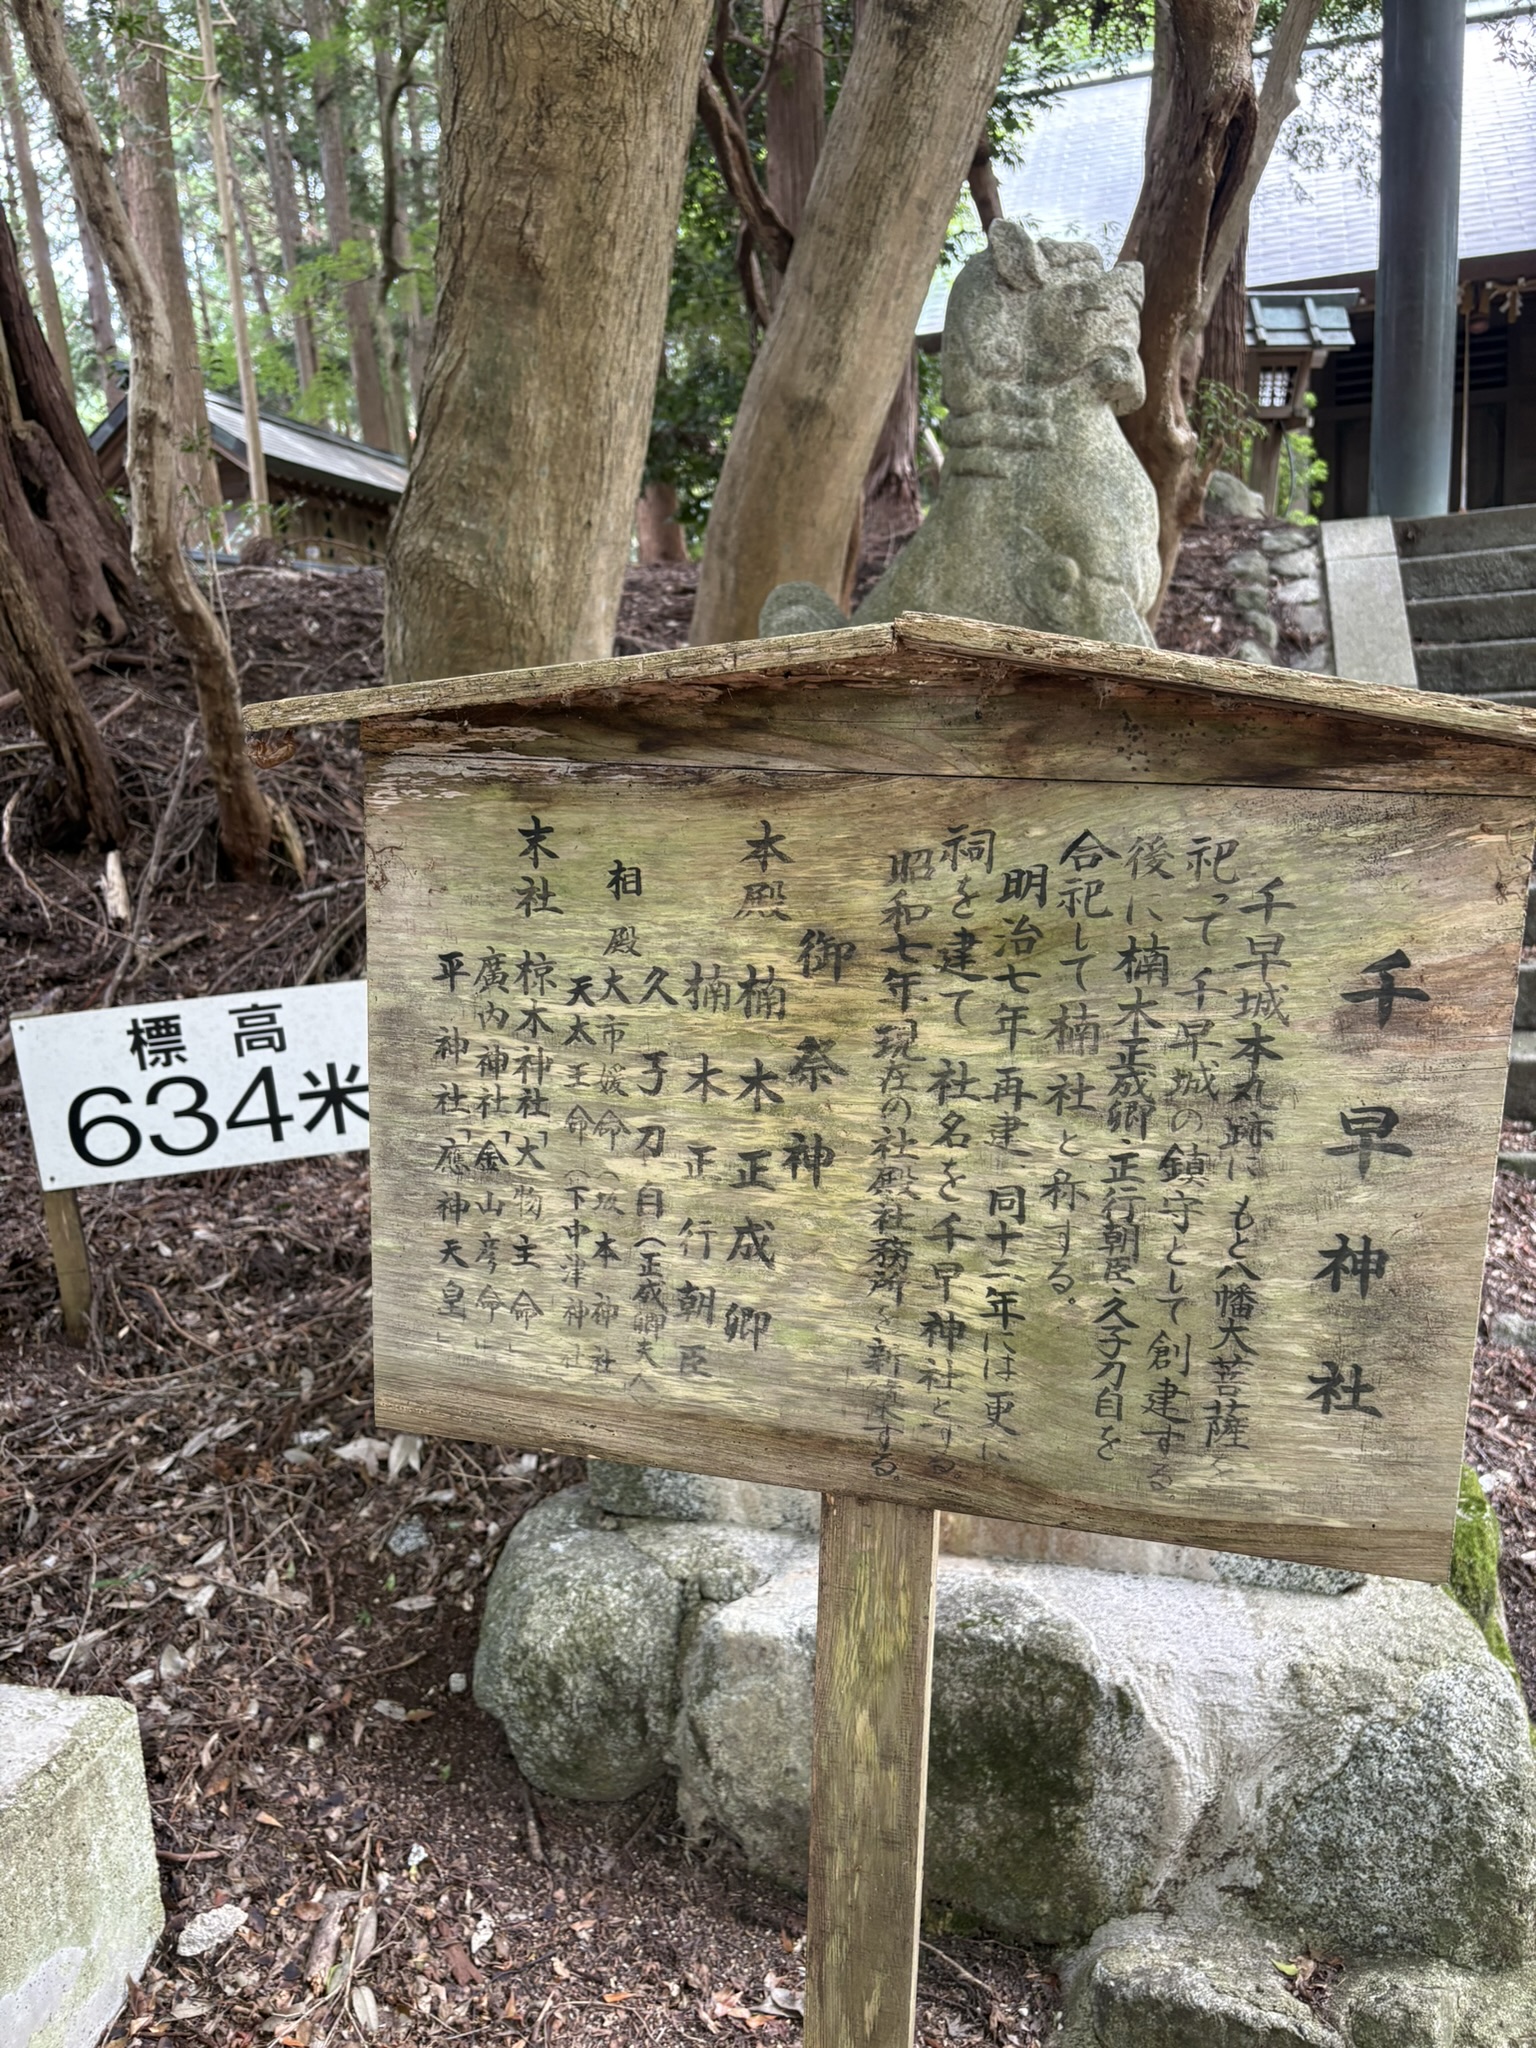 千早神社
千早城本丸跡に もと八幡大菩薩を
祀って千早城の鎮守として創建する
後に楠木正成卿、正行朝臣、久子刀自を
合祀して楠社と称する。
明治七年再建、同十二年には更に
祠を建て 社名を千早神社とする。
昭和七年、現在の社殿社務所を新築する。
御祭神
本殿 楠木正成卿
楠木正行朝臣
久子刀自(正成卿夫人
相殿 大市媛命(坂本神社
天太王命(下中津神社
末社 椋木神社「大物主命」
廣内神社「金山彦命」
平神社「應神天皇」
標高
634米